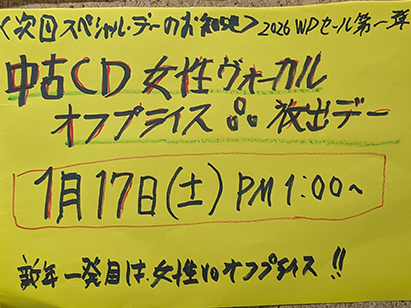 <次回スペシャル・デーのお知らせ> 2026 WDセール第一弾
中古CD 女性ヴォーカル
オフプライス 放出デー
1月17日(土) PM 1:00~
新年一発目は女性voオフプライス!!